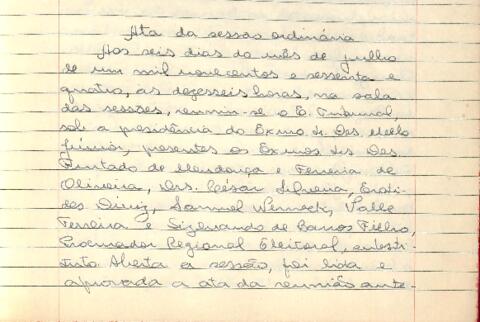 Ata da sessão ordinária
Aos seis dias do mês de julho
de um mil novecentos e sessenta e
quatro, às dezesseis horas, na sala
das sessões, reuniu-se o E. Tribunal,
sob a presidência do Exmo Sr. Des. Mello
Júnior, presentes os Exmos Srs Des.
Furtado de Mendonça e Ferreira de
Oliveira, Drs. César Silveira, Eucli-
des Diniz, Samuel Werneck, Valle
Ferreira e Sizenando de Barros Filho,
Procurador Regional Eleitoral, substi-
tuto. Aberta a sessão, foi lida e
aprovada a ata da reunião ante-